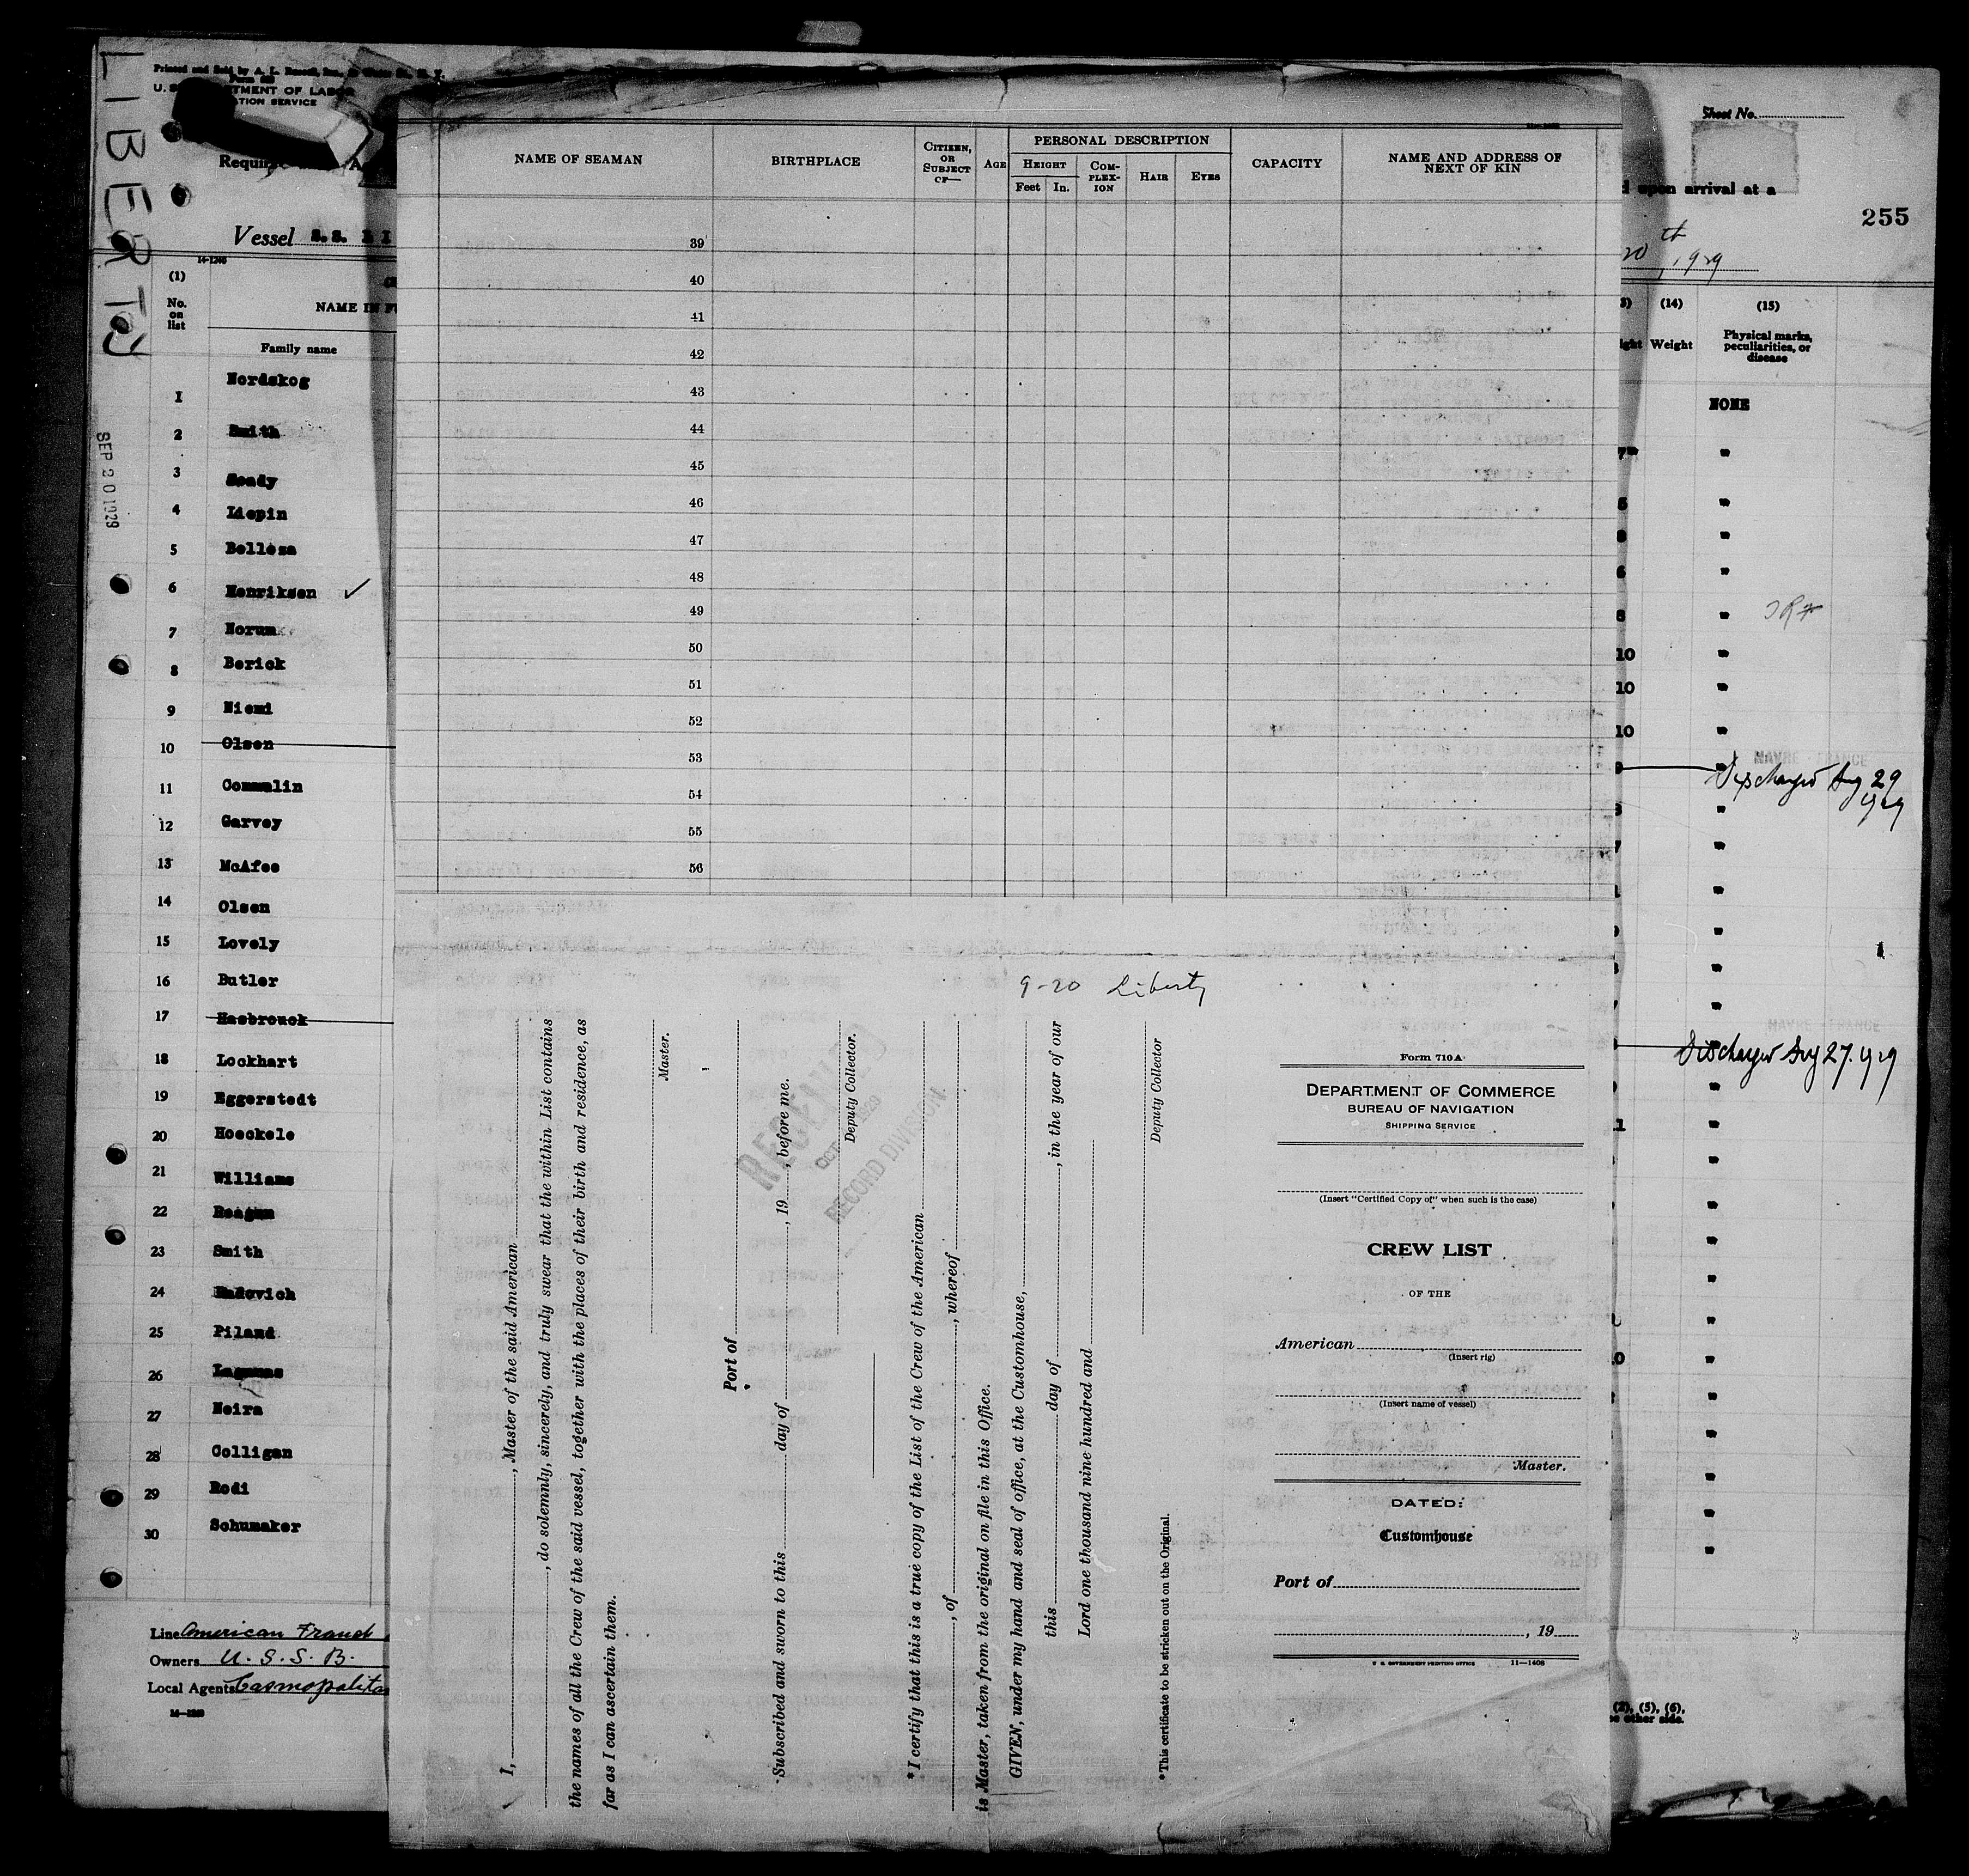 LIBERTY
SEP 20 1929
Form
U. S. DEPARTMENT OF LABOR
Vessel S.S.
14-1240
(1)
No.
on
list
NAME IN
Family name
1 Nordskog
2 Smith
3 Heady
4 Liepin
5 Belleza
6 Henriksen ✓
7 Norum
8 Berick
9 Niemi
10 Olsen
11 Commulin
12 Garvey
13 McAfee
14 Olsen
15 Lovely
16 Butler
17 Hasbrouck
18 Lockhart
19 Eggerstedt
20 Hoeckele
21 Williams
22 Reagan
23 Smith
24 Radovich
25 Piland
26 Lagunas
27 Neira
28 Colligan
29 Rodi
30 Schumaker
Line American
Owners U. S. S. B.
Local Agents
NAME OF SEAMAN
BIRTHPLACE
CITIZEN,
OR
SUBJECT
OF—
AGE
PERSONAL DESCRIPTION
HEIGHT
Feet
In.
COM-
PLEX-
ION
HAIR
EYES
CAPACITY
NAME AND ADDRESS OF
NEXT OF KIN
39
40
41
42
43
44
45
46
47
48
49
50
51
52
53
54
55
56
9-20 Liberty
I, , Master of the said American
, do solemnly, sincerely, and truly swear that the within List contains
the names of all the Crew of the said vessel, together with the places of their birth and residence, as
far as I can ascertain them.
Master.
Port of
Subscribed and sworn to this day of , 19 , before me.
Deputy Collector.
RECORD DIVISION
*I certify that this is a true copy of the List of the Crew of the American
, of , whereof
is Master, taken from the original on file in this Office.
GIVEN, under my hand and seal of office, at the Customhouse,
this day of , in the year of our
Lord one thousand nine hundred and
Deputy Collector
*This certificate to be stricken out on the Original.
Form 710A
DEPARTMENT OF COMMERCE
BUREAU OF NAVIGATION
SHIPPING SERVICE
(Insert "Certified Copy of" when such is the case)
CREW LIST
OF THE
American
(Insert rig)
(Insert name of vessel)
Master.
DATED:
Customhouse
Port of
, 19
U. S. GOVERNMENT PRINTING OFFICE 11—1408
Sheet No.
upon arrival at a
255
20th, 1929
(14)
Weight
(15)
Physical marks,
peculiarities, or
disease
NONE
HAVRE - FRANCE
Discharged Aug 29
1929
HAVRE - FRANCE
Discharged Aug 27. 1929
(2), (5), (6),
other side.